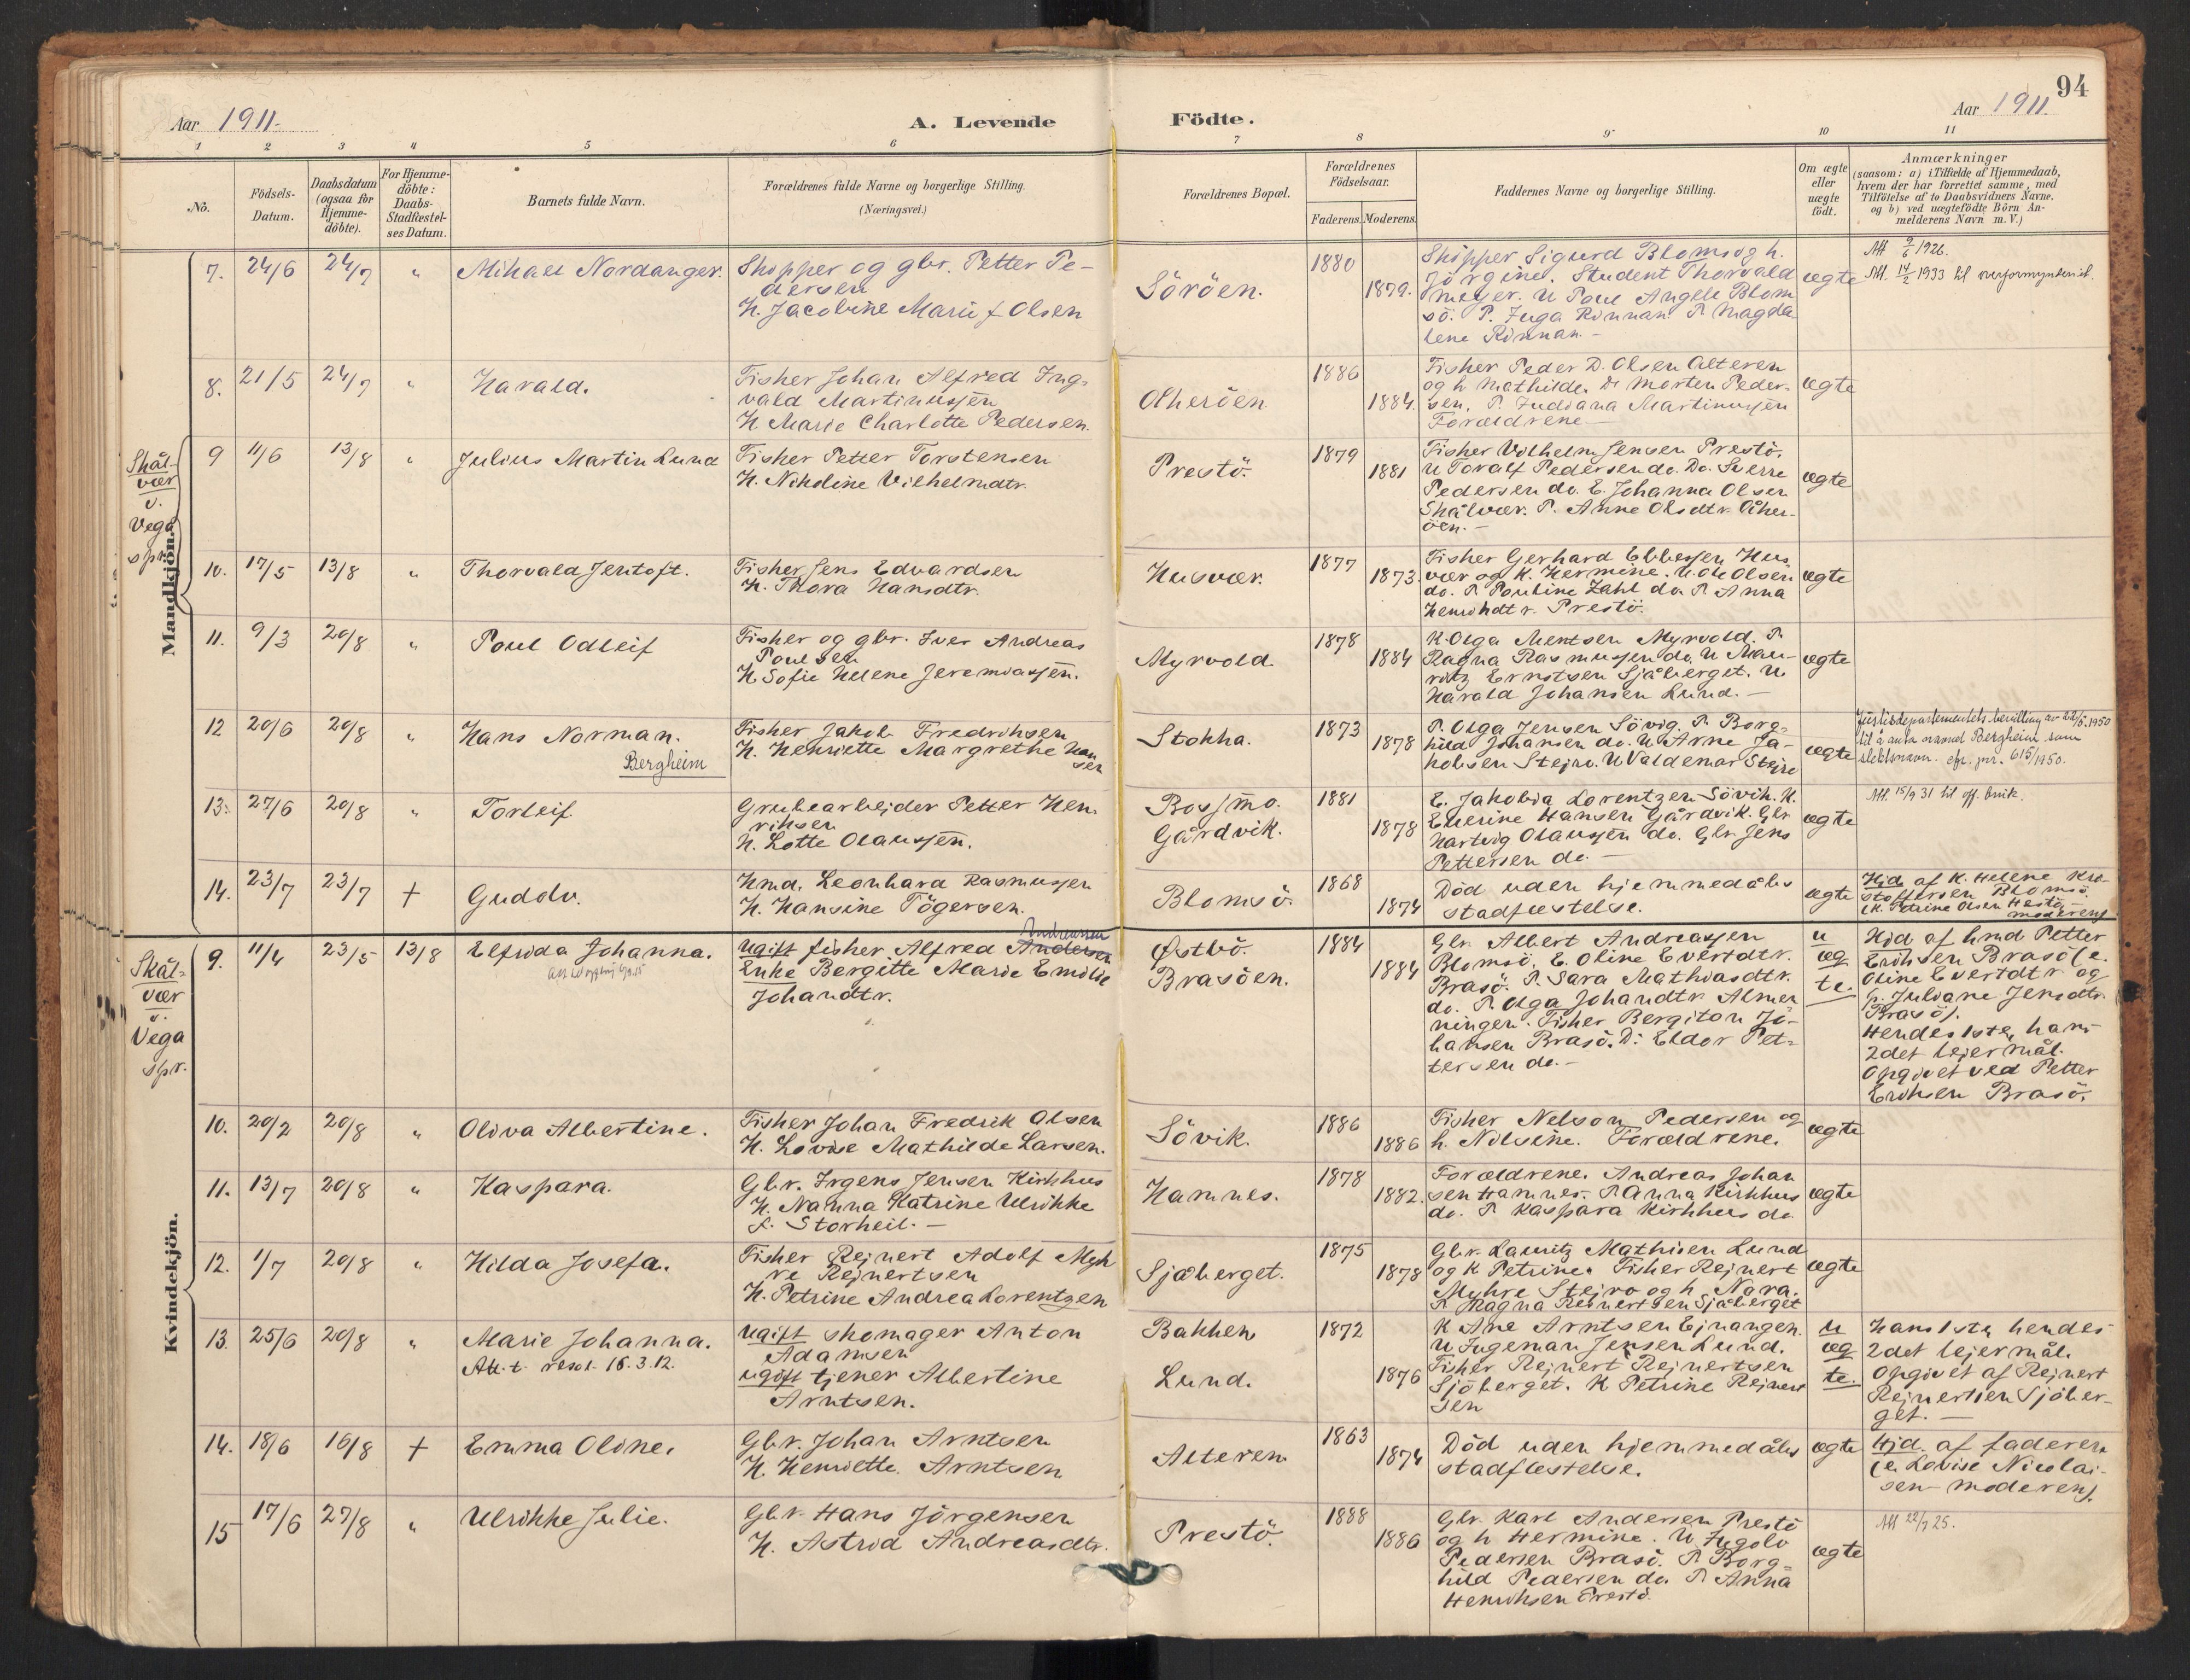 94
Aar 1911.
A. Levende Födte.
Aar 1911.
1 2 3 4 5 6 7 8 9 10 11
No.
Födsels-
Datum.
Daabsdatum
(ogsaa for
Hjemme-
döbte).
For Hjemme-
döbte:
Daabs-
Stadfæstel-
ses Datum.
Barnets fulde Navn.
Forældrenes fulde Navne og borgerlige Stilling.
(Næringsvei.)
Forældrenes Bopæl.
Forældrenes
Födselsaar.
Faderens. Moderens.
Faddernes Navne og borgerlige Stilling.
Om ægte
eller
uægte
födt.
Anmærkninger
(saasom: a) i Tilfælde af Hjemmedaab,
hvem der har forrettet samme, med
Tilföielse af to Daabsvidners Navne.
og b) ved uægtefödte Börn An-
melderens Navn m. V.)
Mandkjön.
7. 24/6 24/7 " Mihael Nordanger.
Skopper og gbr. Petter Pe-
dersen
H. Jacobine Marie f Olsen
Söröen.
1880
1879.
Skipper Sigurd Blomsö og h.
Jörgine. Student Thorvald
Meyer. U Poul Angell Blom
sö. P. Inga Rinnan. P. Magda
lene Rinnan. -
ægte
Att 9/6 1926.
Att. 14/2 1933 til overformynderiet.
8. 21/5 24/7 " Harald.
Fisker Johan Alfred Ing-
vald Martinussen
H Marie Charlotte Pedersen.
Olheröen
1886
1884.
Fisker Peder D. Olsen Alteren
og h Mathilde. Do Morten Peder-
sen. P. Juddiana Martinussen
Forældrene -
ægte
Skål-
vær
v.
Vega
spr
9 11/6 13/8 " Julius Martin Lund
Fisker Petter Torstensen
H. Nikoline Vilhelmdtr.
Prestö.
1879
1881
Fisker Vilhelm Jensen Prestö.
U Toralf Pedersen do. Do. Sverre
Pedersen do. E. Johanna Olsen
Skålvær. P. Anne Olsdtr. Åker-
öen. -
ægte
10. 17/5 13/8 " Thorvald Jentoft.
Fisker Jens Edvardsen
H. Thora Hansdtr.
Husvær.
1877
1873.
Fisker Gerhard Ebbesen Hus
vær og K. Hermine. U. Ole Olsen
do. P. Pauline Zahl do. P. Anna
Henrikdtr. Prestö.
ægte
11. 9/3 20/8 " Poul Odleif
Fisker og gbr. Iver Andreas
Poulsen
H. Sofie Helene Jeremiassen.
Myrvold.
1878
1884
K. Olga Mentsen Myrvold. P.
Ragna Rasmussen do. U Mau-
ritz Ernstsen Sjåberget. U.
Harald Johansen Lund. -
ægte
12 20/6 20/8 " Hans Norman.
Bergheim
Fisker Jakob Fredriksen
H. Henriette Margrethe Han
sen
Stokka.
1873
1878
P. Olga Jensen Sövig. P. Borg-
hild Johansen do. U Arne Ja-
kobsen Stejro. U Valdemar Stejro
ægte
Justisdepartementets bevilling av 22/5 1950
til å anta navnet Bergheim som
slektsnavn. cfr. jnr. 615/1950.
13. 27/6 20/8 " Torleif.
Grubearbejder Petter Hen
riksen
H. Lotte Olaussen.
Bossmo.
Gårdvik.
1881
1878
E. Jakobia Lorentzen Sövik. K.
Eluerine Hansen Gårdvik. Gbr
Hartvig Olaussen do. Gbr. Jens
Pettersen do. -
ægte
Att. 15/9 31 til off. bruk.
14. 23/7 23/7 + Guddv.
Hmd. Leonhard Rasmussen
H. Hansine Tögersen.
Blomsö.
1868
1874
Död uden hjemmedåbs
stadfæstelse.
ægte
Hjd af K. Helene Kri-
stoffersen Blomsö
(K. Petrine Olsen Hestö -
moderen)
Kvindekjön.
Skål-
vær
v.
Vega
spr.
9. 11/4 23/5 13/8 Elfrida Johanna.
Andreassen
ugift fisker Alfred Andersen
Enke Bergitte Marie Emilie
Johandtr.
Østbö.
Brasöen.
1884
1884
Gbr. Albert Andreassen
Blomsö. E. Oline Evertdtr.
Brasö. P. Sara Mathiasdtr.
do. P. Olga Johandtr. Almer
ningen. Fisker Bergiton Jo-
hansen Brasö. Do Eldor Pet-
tersen do. -
u
æg
te.
Hjd af hmd Petter
Eriksen Brasö (e.
Oline Evertdtr og
p. Juliane Jensdtr.
Brasö).
Hendes 1ste, hans
2det lejermål.
Opgivet ved Petter
Eriksen Brasö.
10. 20/2 20/8 " Oliva Albertine.
Fisker Johan Fredrik Olsen
H. Lovise Mathilde Larsen.
Sövik.
1886
1886
Fisker Nelson Pedersen og
h. Nilsine. Forældrene.
ægte
11. 13/7 20/8 " Kaspara.
Gbr. Irgens Jensen Kirkhus
H. Nanna Katrine Ulrikke
f. Storheil. -
Hamnes.
1878
1882.
Forældrene. Andreas Johan
sen Hamnes. P. Anna Kirkhus
do. P. Kaspara Kirkhus do
ægte
12. 1/7 20/8 " Hilda Josefa.
Fisker Rejnert Adolf Myh
re Rejnertsen
H. Petrine Andrea Lorentzen
Sjåberget.
1875
1878
Gbr. Lauritz Mathisen Lund
og K Petrine. Fisker Rejnert
Myhre Stejro og h Nora.
P. Magna Rejnertsen Sjåberget
ægte
13. 25/6 20/8 " Marie Johanna.
Att. t. resol. 16.3.12.
ugift skomager Anton
Adamsen
ugift tjener Albertine
Arntsen.
Bakken
Lund.
1872
1876
K Ane Arntsen Ejnangen.
U Ingeman Jensen Lund.
Fisker Rejnert Rejnertsen
Sjöberget. K Petrine Rejnert
sen
u
æg
te.
Hans 1ste, hendes
2det lejermål.
Opgivet af Rejnert
Rejnertsen Sjöber-
get. -
14. 18/6 16/8 + Emma Oline.
Gbr. Johan Arntsen
H. Henriette Arntsen
Alteren
1863
1874
Död uden hjemmedåbs
stadfæstelse.
ægte
Hjd. af faderen
(e. Lovise Nicolai-
sen - moderen).
15 17/6 27/8 " Ulrikke Julie.
Gbr. Hans Jörgensen
H. Astrid Andreasdtr.
Prestö.
1888
1886
Gbr. Karl Andersen Prestö
og h Hermine. U Ingolv
Pedersen Brasö. P. Borg-
hild Pedersen do. P. Anna
Henriksen Prestö.
ægte
Att 22/7 25.